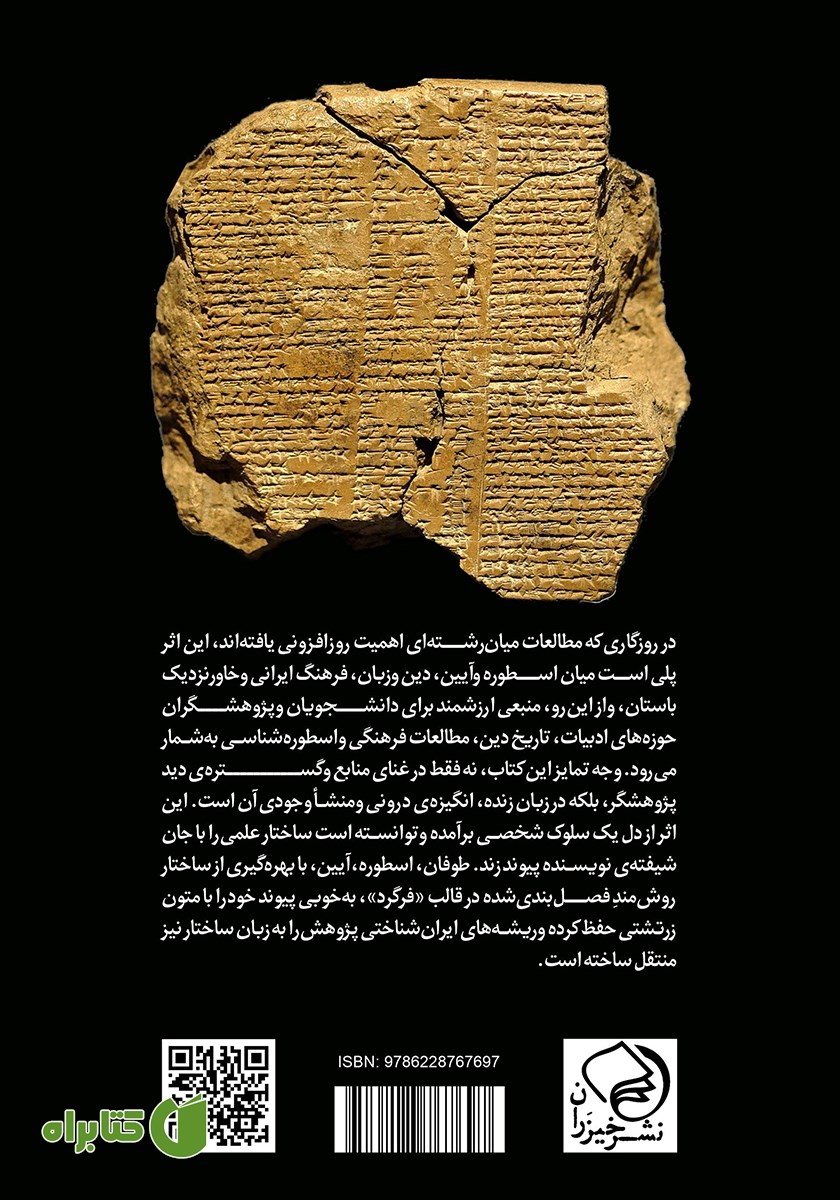 در روزگاری که مطالعات میان‌رشته‌ای اهمیت روزافزونی یافته‌اند، این اثر
پلی است میان اسطوره وآیین، دین وزبان، فرهنگ ایرانی وخاورنزدیک
باستان، واز این رو، منبعی ارزشمند برای دانشجویان وپژوهشگران
حوزه‌های ادبیات، تاریخ دین، مطالعات فرهنگی واسطوره‌شناسی به‌شمار
می‌رود. وجه تمایز این کتاب، نه فقط در غنای منابع وگستره‌ی دید
پژوهشگر، بلکه در زبان زنده، انگیزه‌ی درونی ومنشأ وجودی آن است. این
اثر از دل یک سلوک شخصی برآمده وتوانسته است ساختار علمی را با جان
شیفته‌ی نویسنده پیوند زند. طوفان، اسطوره، آیین، با بهره‌گیری از ساختار
روش‌مندِ فصل‌بندی‌شده در قالب «فرگرد»، به‌خوبی پیوند خود را با متون
زرتشتی حفظ کرده وریشه‌های ایران‌شناختی پژوهش را به زبان ساختار نیز
منتقل ساخته است.
ISBN: 9786228767697
نشر خیزران
کتابراه